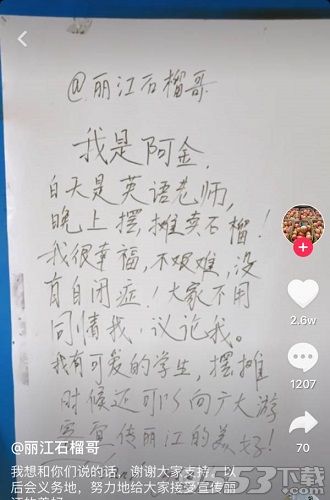 @丽江石榴哥
我是阿金.
白天是英语老师,
晚上摆摊卖石榴!
我很幸福,不艰难,没
有自闭症!大家不用
同情我,议论我。
我有可爱的学生,摆摊
时候还可以向广大游
客宣传丽江的美好!
2.6w
1207
70
@丽江石榴哥
我想和你们说的话。谢谢大家支持。以
后会义务地,努力地给大家接受宣传丽
9553下载